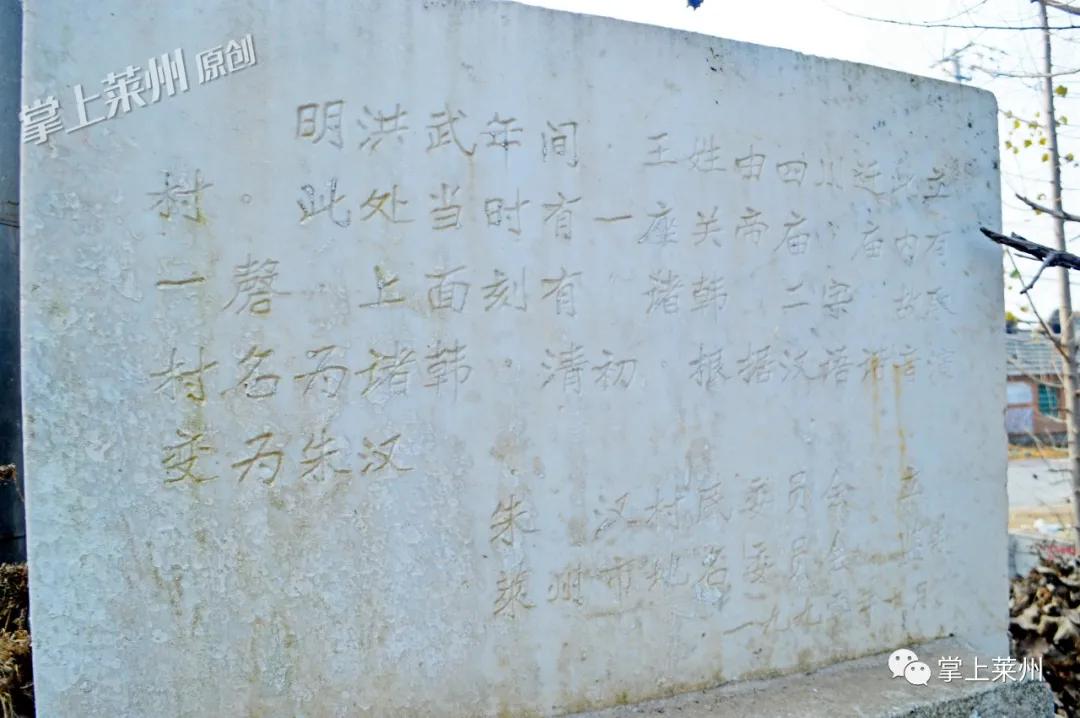 掌上莱州 原创
明洪武年间.王姓由四川迁此立
村.此处当时有一座关帝庙.庙内有
一磬.上面刻有诸韩二字.故取
村名为诸韩.清初.根据汉语谐音演
变为朱汉
朱汉村民委员会 立
莱州市地名委员会
一九九 年 月
掌上莱州